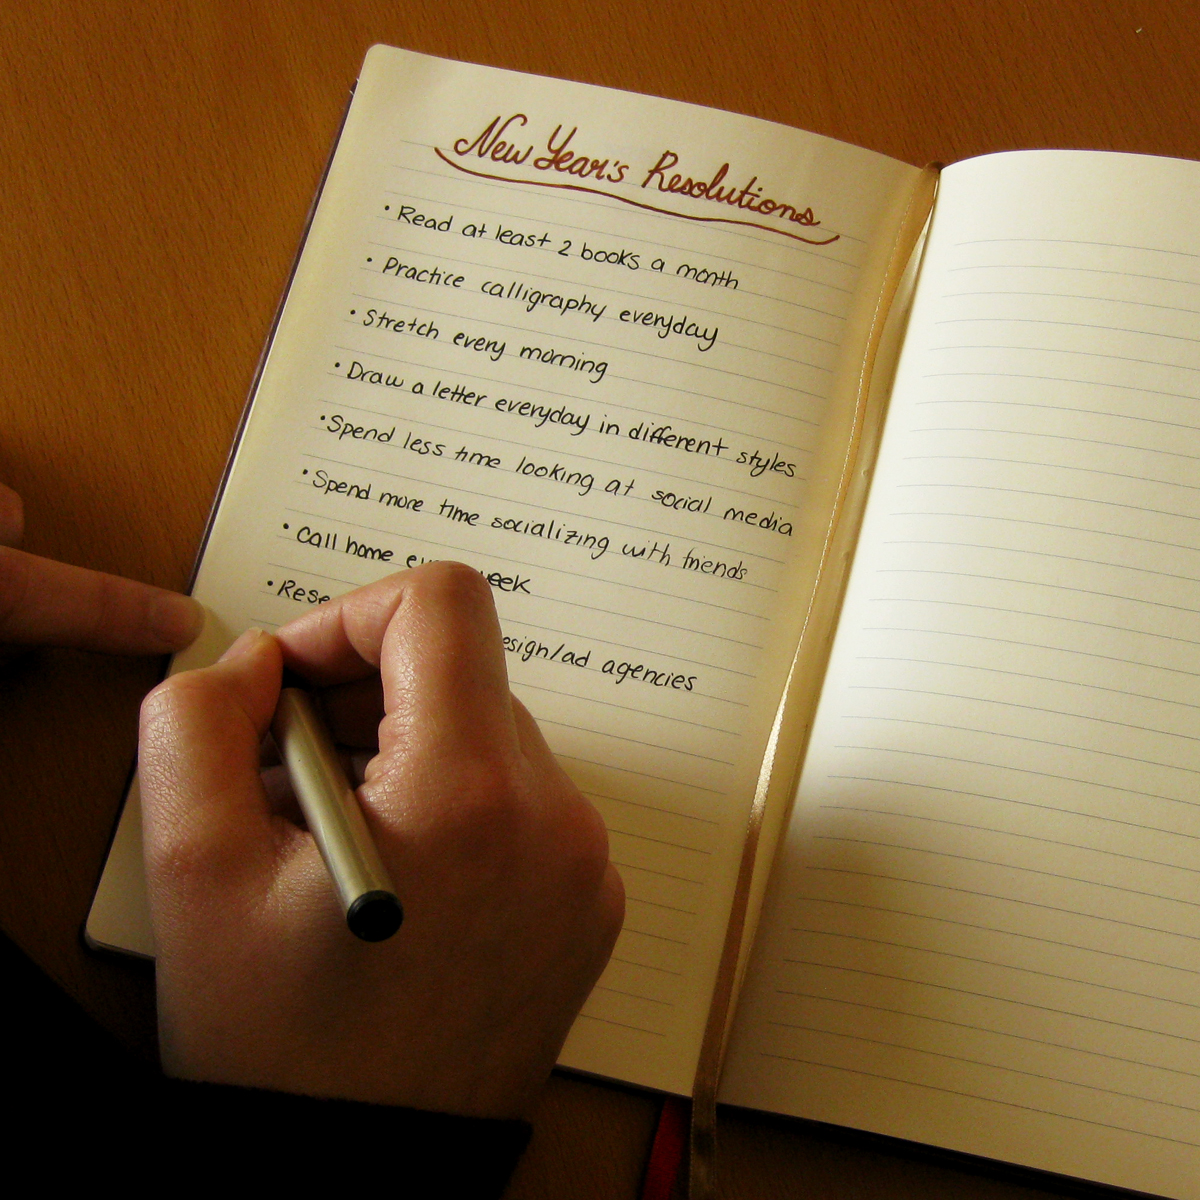 New Year's Resolutions
• Read at least 2 books a month
• Practice calligraphy everyday
• Stretch every morning
• Draw a letter everyday in different styles
• Spend less time looking at social media
• Spend more time socializing with friends
• Call home week
•
/ad agencies